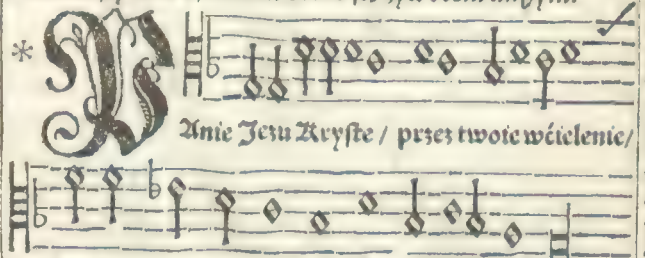 * PAnie Jezu Kryste / przez twoie wćielenie/